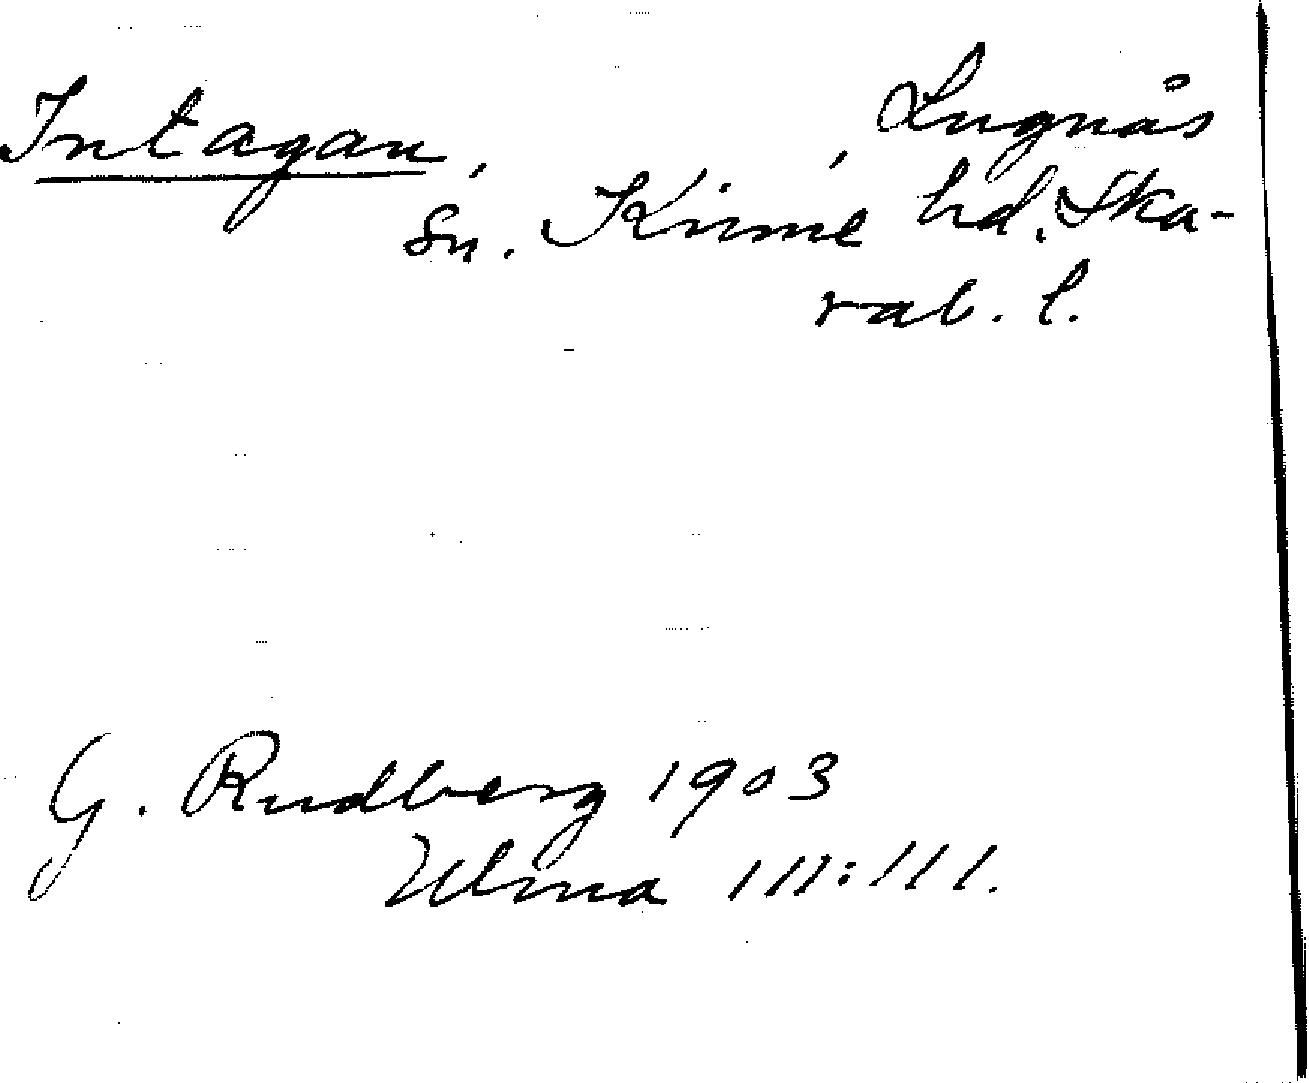 Intagan, , Lugnås
sn. Kinne hd. Ska-
rab. l.
G. Rudberg 1903
Ulma 111:111.